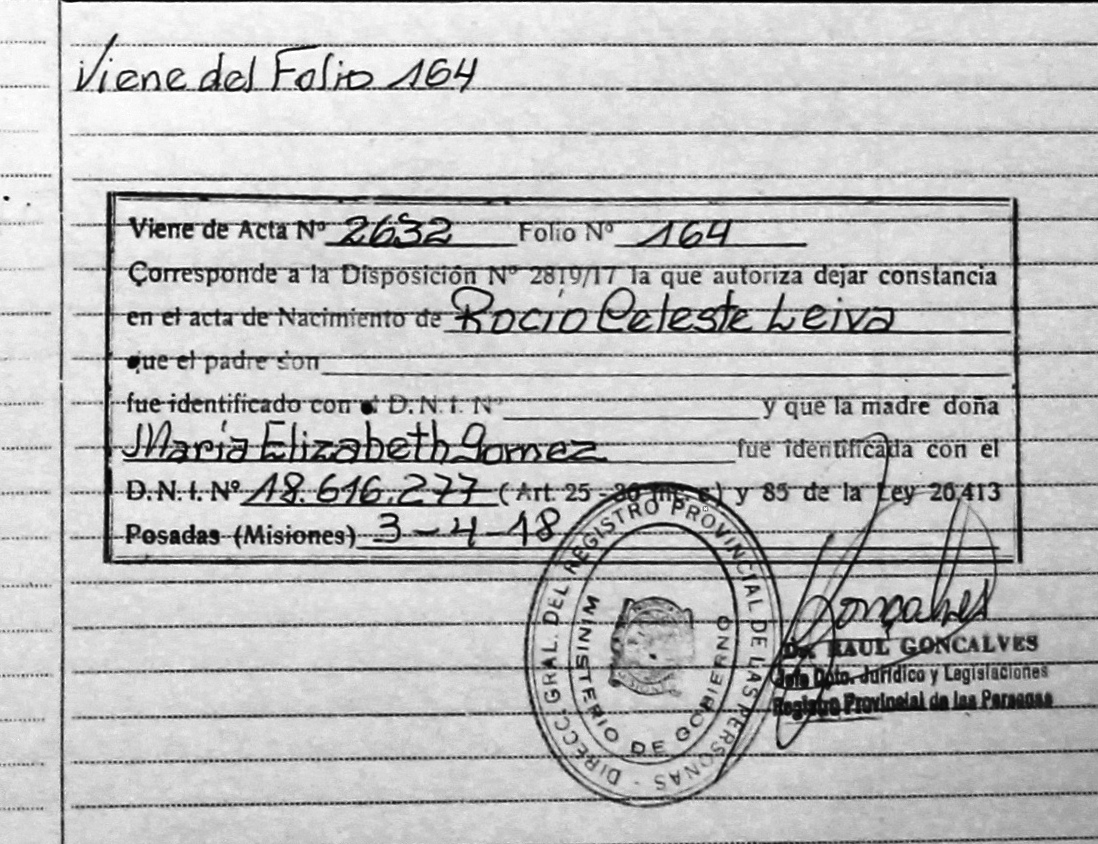 Viene del Folio 164
Viene de Acta Nº 2632 Folio Nº 164
Corresponde a la Disposición Nº 2819/17 la que autoriza dejar constancia
en el acta de Nacimiento de Rocío Celeste Leiva
que el padre don
fue identificado con el D.N.I. Nº y que la madre doña
María Elizabeth Gomez fue identificada con el
D.N.I. Nº 18.616.277 (Art. 25 - 36 inc. c) y 85 de la Ley 26.413
Posadas (Misiones) 3-4-18
DIRECC. GRAL. DEL REGISTRO PROVINCIAL DE LAS PERSONAS
MINISTERIO DE GOBIERNO
Gonçalves
Dr. RAUL GONCALVES
Jefe Dpto. Jurídico y Legislaciones
Registro Provincial de las Personas